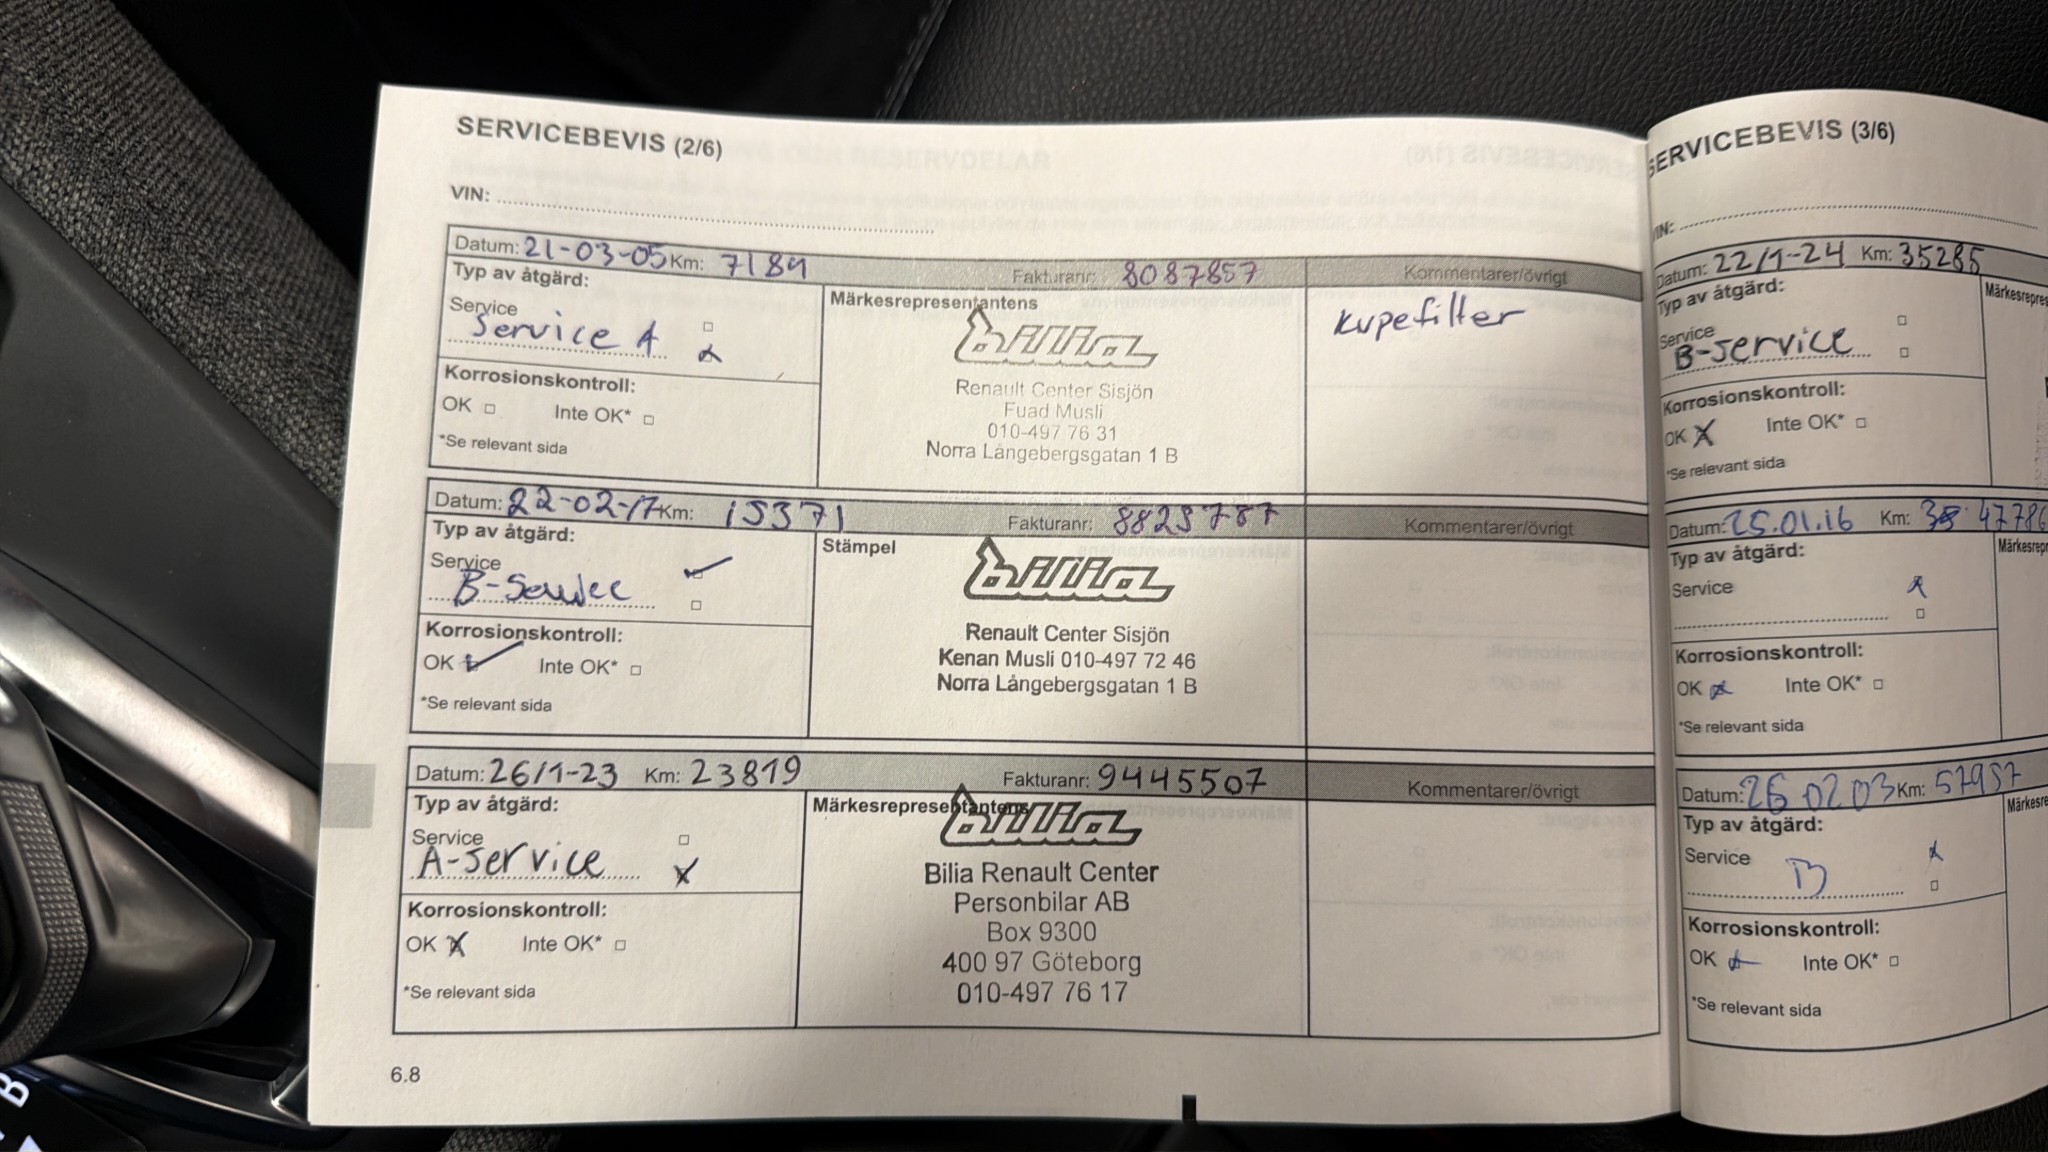 SERVICEBEVIS (2/6)
VIN:
Datum: 21-03-05 Km: 7184 Fakturanr: 8087857 Kommentarer/övrigt
Typ av åtgärd:
Märkesrepresentantens
Service
Service A
kupefilter
bilia
Renault Center Sisjön
Fuad Musli
010-497 76 31
Norra Långebergsgatan 1 B
Korrosionskontroll:
OK Inte OK*
*Se relevant sida
Datum: 22-02-17 Km: 15371 Fakturanr: 8825787 Kommentarer/övrigt
Typ av åtgärd:
Stämpel
Service
B-Service
bilia
Renault Center Sisjön
Kenan Musli 010-497 72 46
Norra Långebergsgatan 1 B
Korrosionskontroll:
OK Inte OK*
*Se relevant sida
Datum: 26/1-23 Km: 23819 Fakturanr: 9445507 Kommentarer/övrigt
Typ av åtgärd:
Märkesrepresentantens
Service
A-service
bilia
Bilia Renault Center
Personbilar AB
Box 9300
400 97 Göteborg
010-497 76 17
Korrosionskontroll:
OK X Inte OK*
*Se relevant sida
6.8
SERVICEBEVIS (3/6)
VIN:
Datum: 22/1-24 Km: 35285
Typ av åtgärd:
Märkesrepres
Service
B-service
Korrosionskontroll:
OK X Inte OK*
*Se relevant sida
Datum: 25.01.16 Km: 47786
Typ av åtgärd:
Märkesrepr
Service
Korrosionskontroll:
OK Inte OK*
*Se relevant sida
Datum: 26 02 03 Km: 57957
Typ av åtgärd:
Märkesre
Service
B
Korrosionskontroll:
OK Inte OK*
*Se relevant sida
B